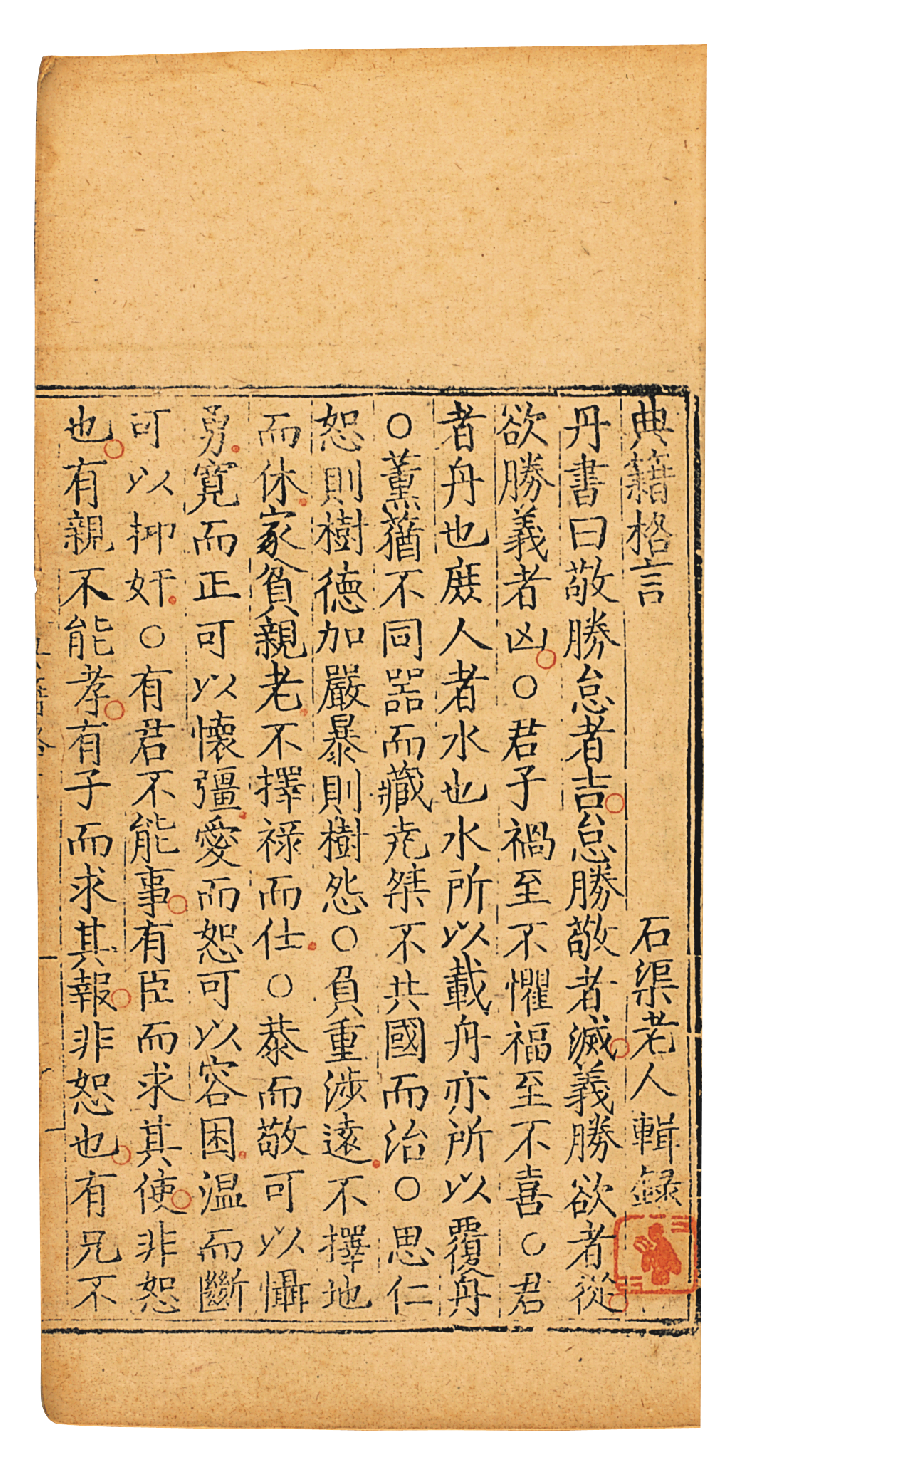 典籍格言 石渠老人輯録
丹書曰敬勝怠者吉怠勝敬者滅義勝欲者從
欲勝義者凶○君子禍至不懼福至不喜○君
者舟也庶人者水也水所以載舟亦所以覆舟
○薰蕕不同器而藏尭桀不共國而治○思仁
恕則樹德加嚴暴則樹怨○負重涉遠不擇地
而休家貧親老不擇祿而仕○恭而敬可以懾
勇寬而正可以懷彊愛而恕可以容困温而斷
可以抑奸○有君不能事有臣而求其使非恕
也有親不能孝有子而求其報非恕也有兄不